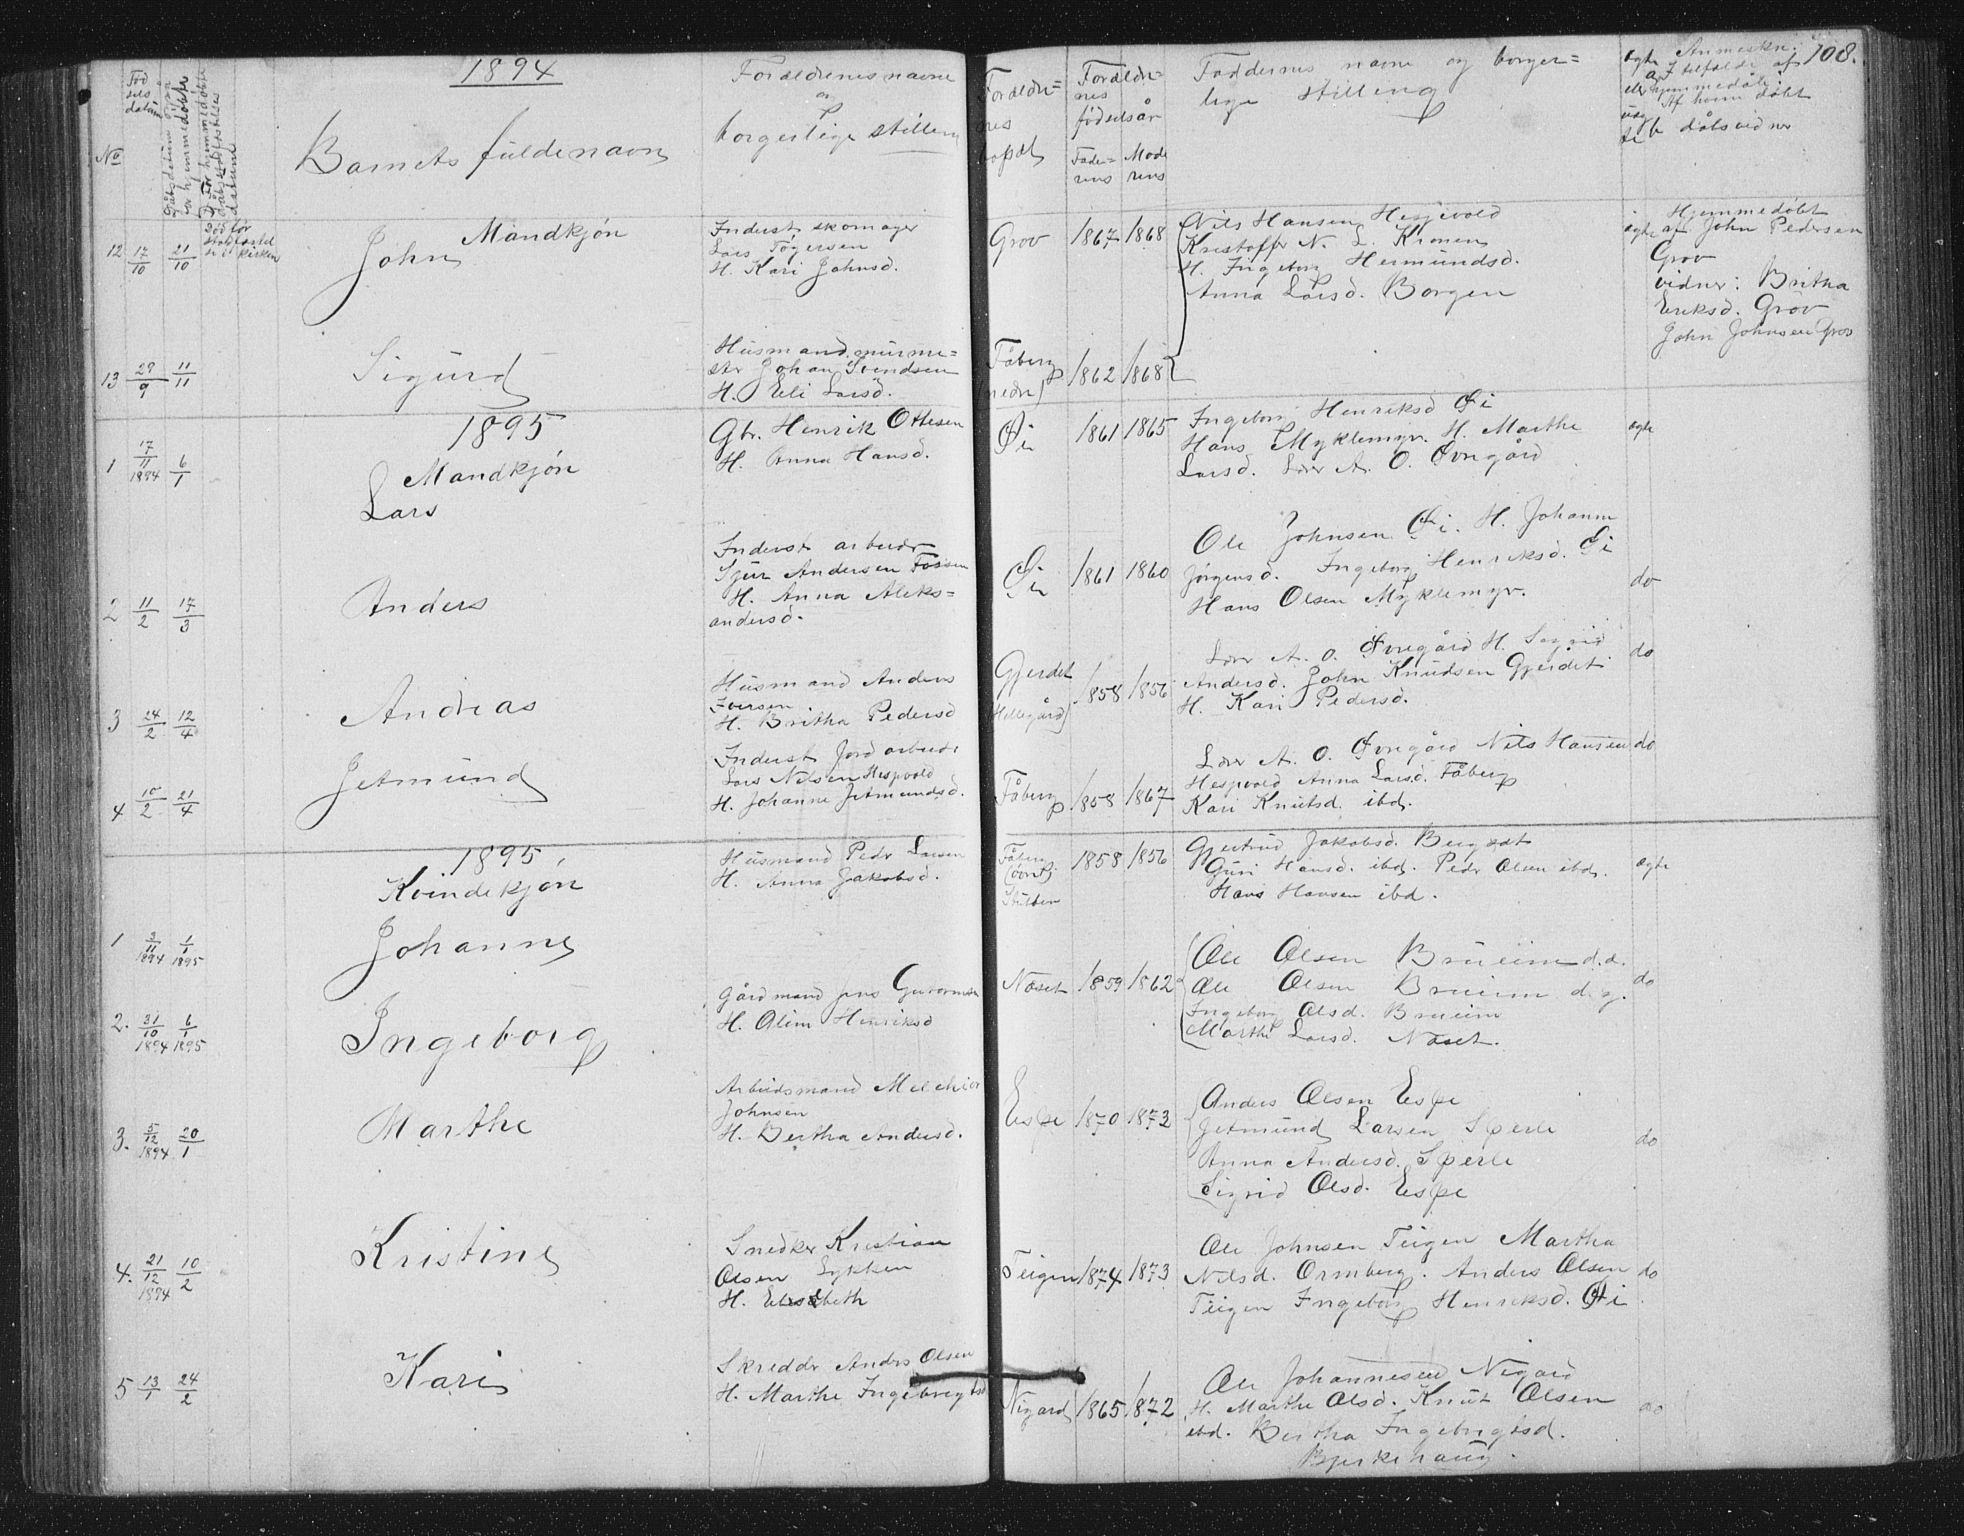 1894
108.
No
Fødselsdatum
Barnets fulde navn
Forældrenes navne
og
borgerlige stilling
Forældrenes bopæl
Forældrenes fødselsår
Faderens Moderens
Faddernes navne og borger=
lige stilling
ægte eller uægte
Mandkjøn
12 17/10 21/10
John
Inderst skomager
Lars Tøgersen
H. Kari Johnsd.
Grov 1867 1868
Nils Hansen Hespevold
Kristoffer N. L. Kronen
H. Ingeborg Hermundsd.
Anna Larsd. Borgen
ægte
Hjemmedøbt
af John Pedersen
Grov
vidner: Britha
Eriksd. Grov
John Johnsen Grov
13 29/9 11/11
Sigurd
Husmand murme=
ster Johan Svendsen
H. Eli Larsd.
Fåberg
nedre) 1862 1868
1895
Mandkjøn
1 17/11 1894 6/1
Lars
Gbr. Henrik Ottesen
H. Anna Hansd.
Øi 1861 1865
Ingeborg Henriksd Øi
Hans Myklemyr. H. Marthe
Larsd. Lærer A. O. Øvregård
ægte
2 11/2 17/3
Anders
Inderst arbeider
Sjur Andersen Fossen
H. Anna Aleks=
andersd.
Øi 1861 1860
Ole Johnsen Øi. H. Johanne
Jørgensd. Ingeborg Henriksd. Øi
Hans Olsen Myklemyr.
do
3 24/2 12/4
Andreas
Husmand Anders
Iversen
H. Britha Pedersd
Gjerdet
Hellegård) 1858 1856
Lærer A. O. Øvregård H. Sigrid
Andersd. John Knudsen Gjerdet
H. Kari Pedersd.
do
4 10/2 21/4
Jetmund
Inderst Jordarbeider
Lars Nilsen Hespevold
H. Johanne Jetmundsd.
Fåberg 1858 1867
Lærer A. O. Øvregård Nils Hansen
Hespevold Anna Larsd. Fåberg
Kari Knutsd. ibd.
do
1895
Kvindekjøn
1 3/11 1894 1/1 1895
Johanne
Husmand Peder Larsen
H. Anna Jakobsd.
Fåberg
(øvre) 1858 1856
Gjertrud Jakobsd. Bergset
Guri Hansd. ibd. Peder Olsen ibd.
Hans Hansen ibd.
ægte
2. 31/10 1894 6/1 1895
Ingeborg
Gårdmand Jens Guttormsen
H. Oline Henriksd
Næset 1859 1862
Ole Olsen Bruheim d.æ.
Ole Olsen Bruheim d.y.
Ingeborg Olsd. Bruheim
Marthe Larsd. Næset.
do
3. 5/12 1894 20/1
Marthe
Arbeidsmand Melchior
Johnsen
H. Bertha Andersd.
Espe 1870 1873
Anders Olsen Espe
Jetmund Larsen Sperle
Anna Andersd. Sperle
Sigrid Olsd. Espe
do
4. 21/12 1894 10/2
Kristine
Snedker Kristian
Olsen Lykken
H. Elisabeth
Teigen 1874 1873
Ole Johnsen Teigen Martha
Nilsd. Ormberg. Anders Olsen
Teigen Ingeborg Henriksd. Øi
do
5 13/1 24/2
Kari
Skredder Anders Olsen
H. Marthe Ingebrigtsd
Nigard 1865 1872
Ole Johannesen Nigard
H. Marthe Olsd. Knut Olsen
ibd. Bertha Ingebrigtsd.
Bjerkehaug.
do